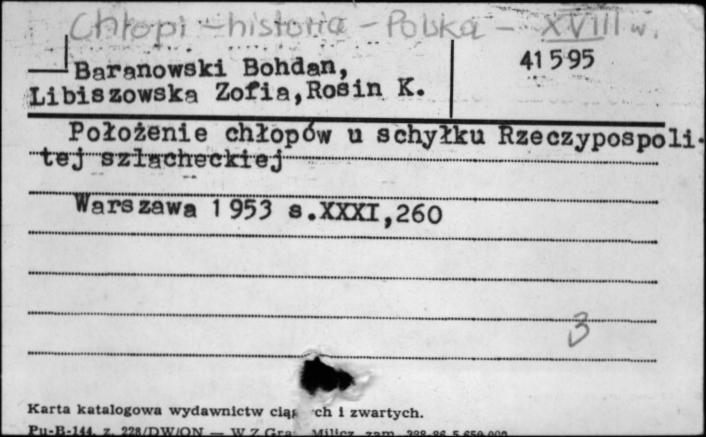 Chłopi - historia - Polska - XVIII w.
41595
Baranowski Bohdan,
Libiszowska Zofia, Rosin K.
Położenie chłopów u schyłku Rzeczypospoli-
tej szlacheckiej
Warszawa 1953 s.XXXI,260
3
Karta katalogowa wydawnictw ciąg ch i zwartych.
Pu-B-144, z. 228/DW/ON — W Z Gra Milicz, zam.